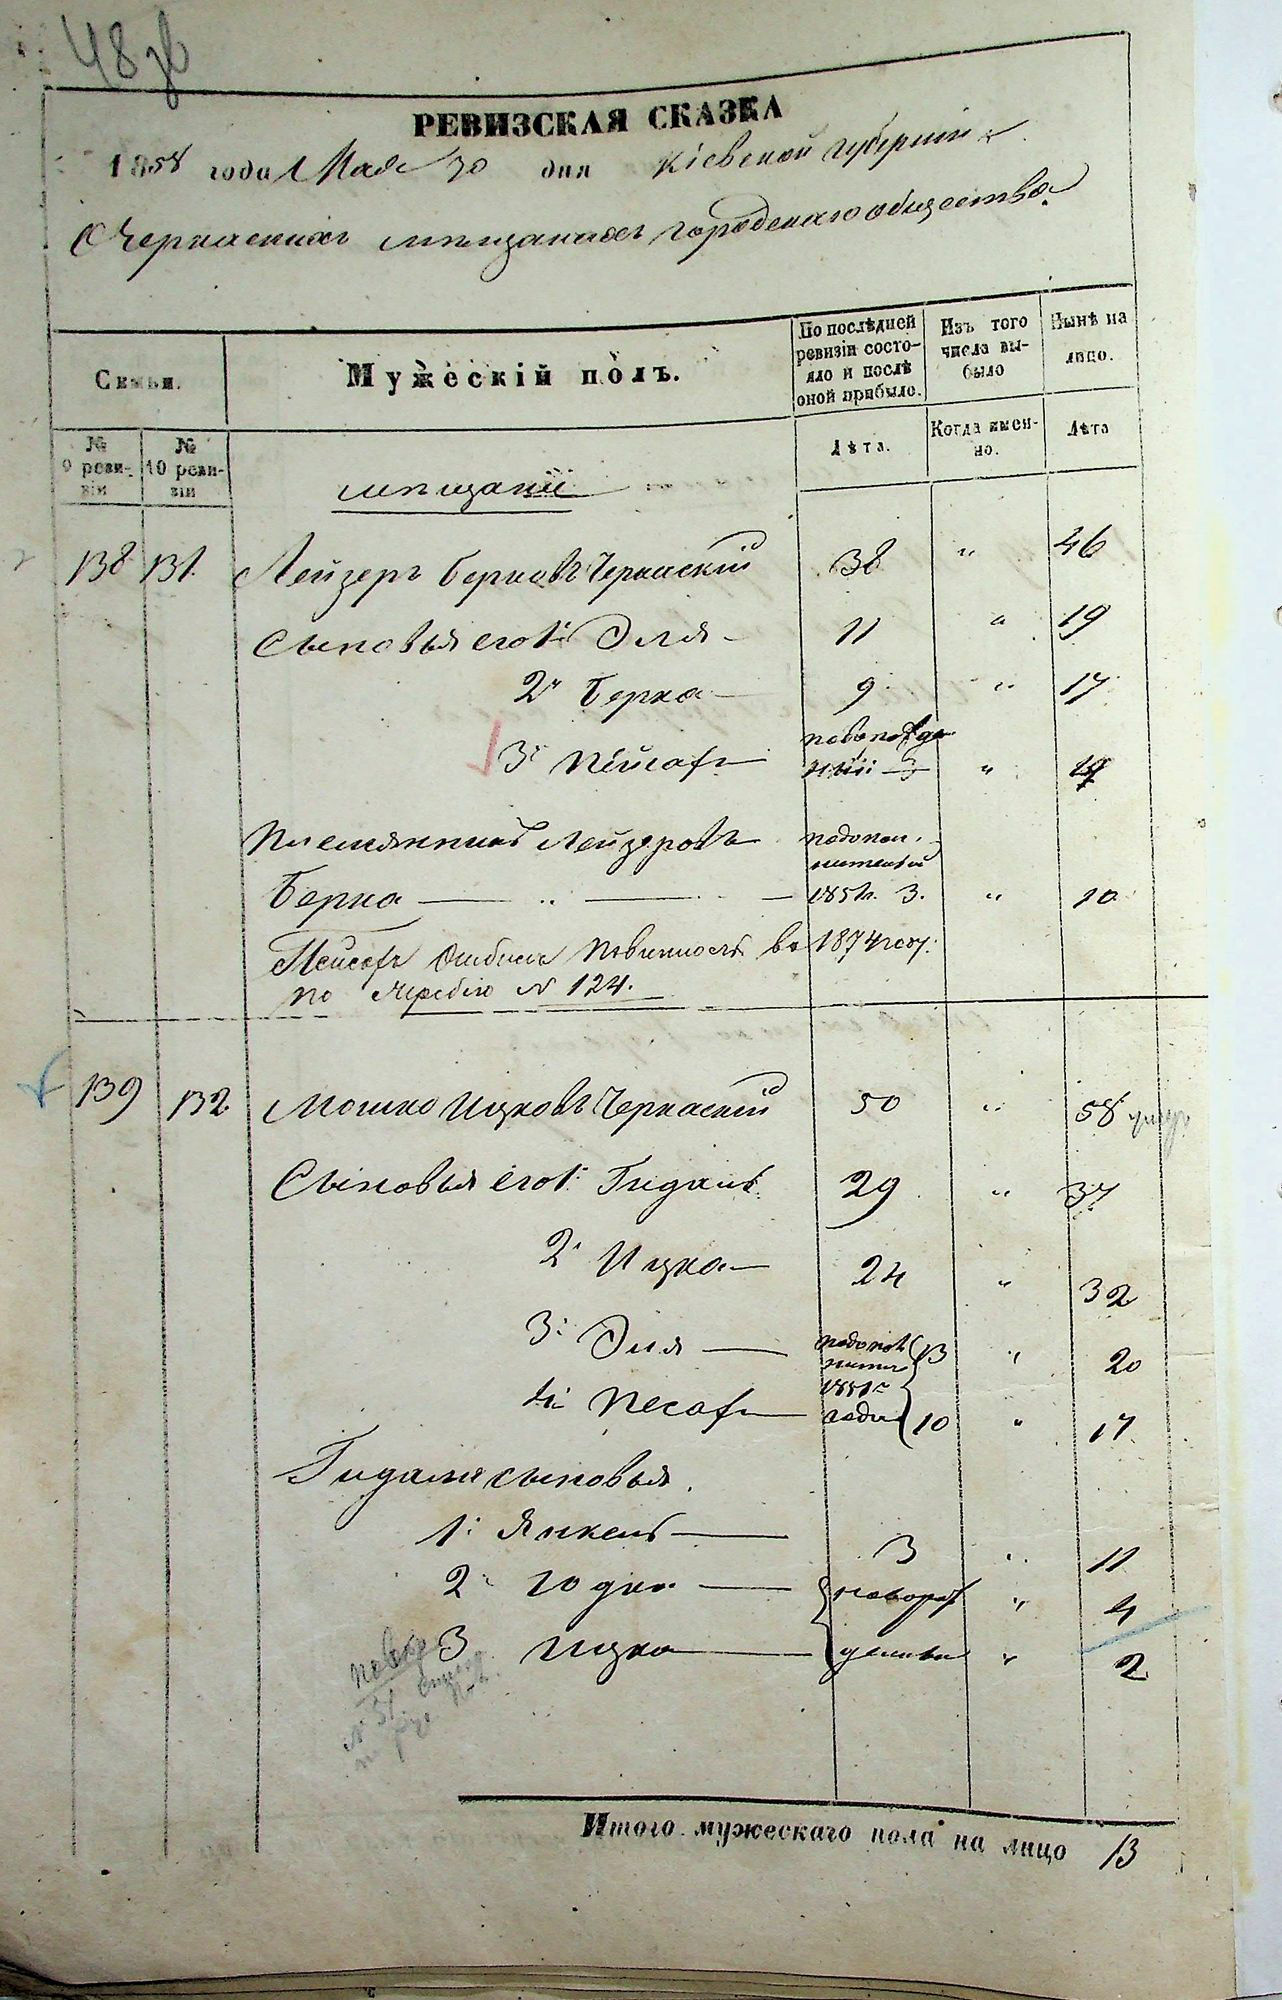 48 зв
РЕВИЗСКАЯ СКАЗКА
1858 года Мая 30 дня Кіевской губерніи
О Черкаскихъ мѣщанахъ городскаго общества.
Семьи.
Мужескій полъ.
По послѣдней ревизіи состояло и послѣ оной прибыло.
Изъ того числа выбыло
Нынѣ на лицо.
№ 9 ревизіи
№ 10 ревизіи
Лѣта.
Когда именно.
Лѣта
мѣщане
138 131. Лейзеръ Берковъ Черкаскій 38 " 46
Сыновья его 1й Эля 11 " 19
2й Берка 9 " 17
3й Пейсахъ новорожденный "
Племянникъ Лейзеровъ
Берка 185 3. " 10
Пейсахъ отбылъ повинность въ 1874 году.
по жребію № 124.
139 132. Мошко Ицковъ Черкаскій 50 " 58
Сыновья его 1й Гидаль 29 " 37
2й Ицко 24 " 32
3й Эля 13 " 20
4й Песахъ 1851 года 10 " 17
Гидаля сыновья.
1й Янкель 3 " 11
2й Юдко новорож " 4
3 Ицко денные " 2
Итого мужескаго пола на лицо 13